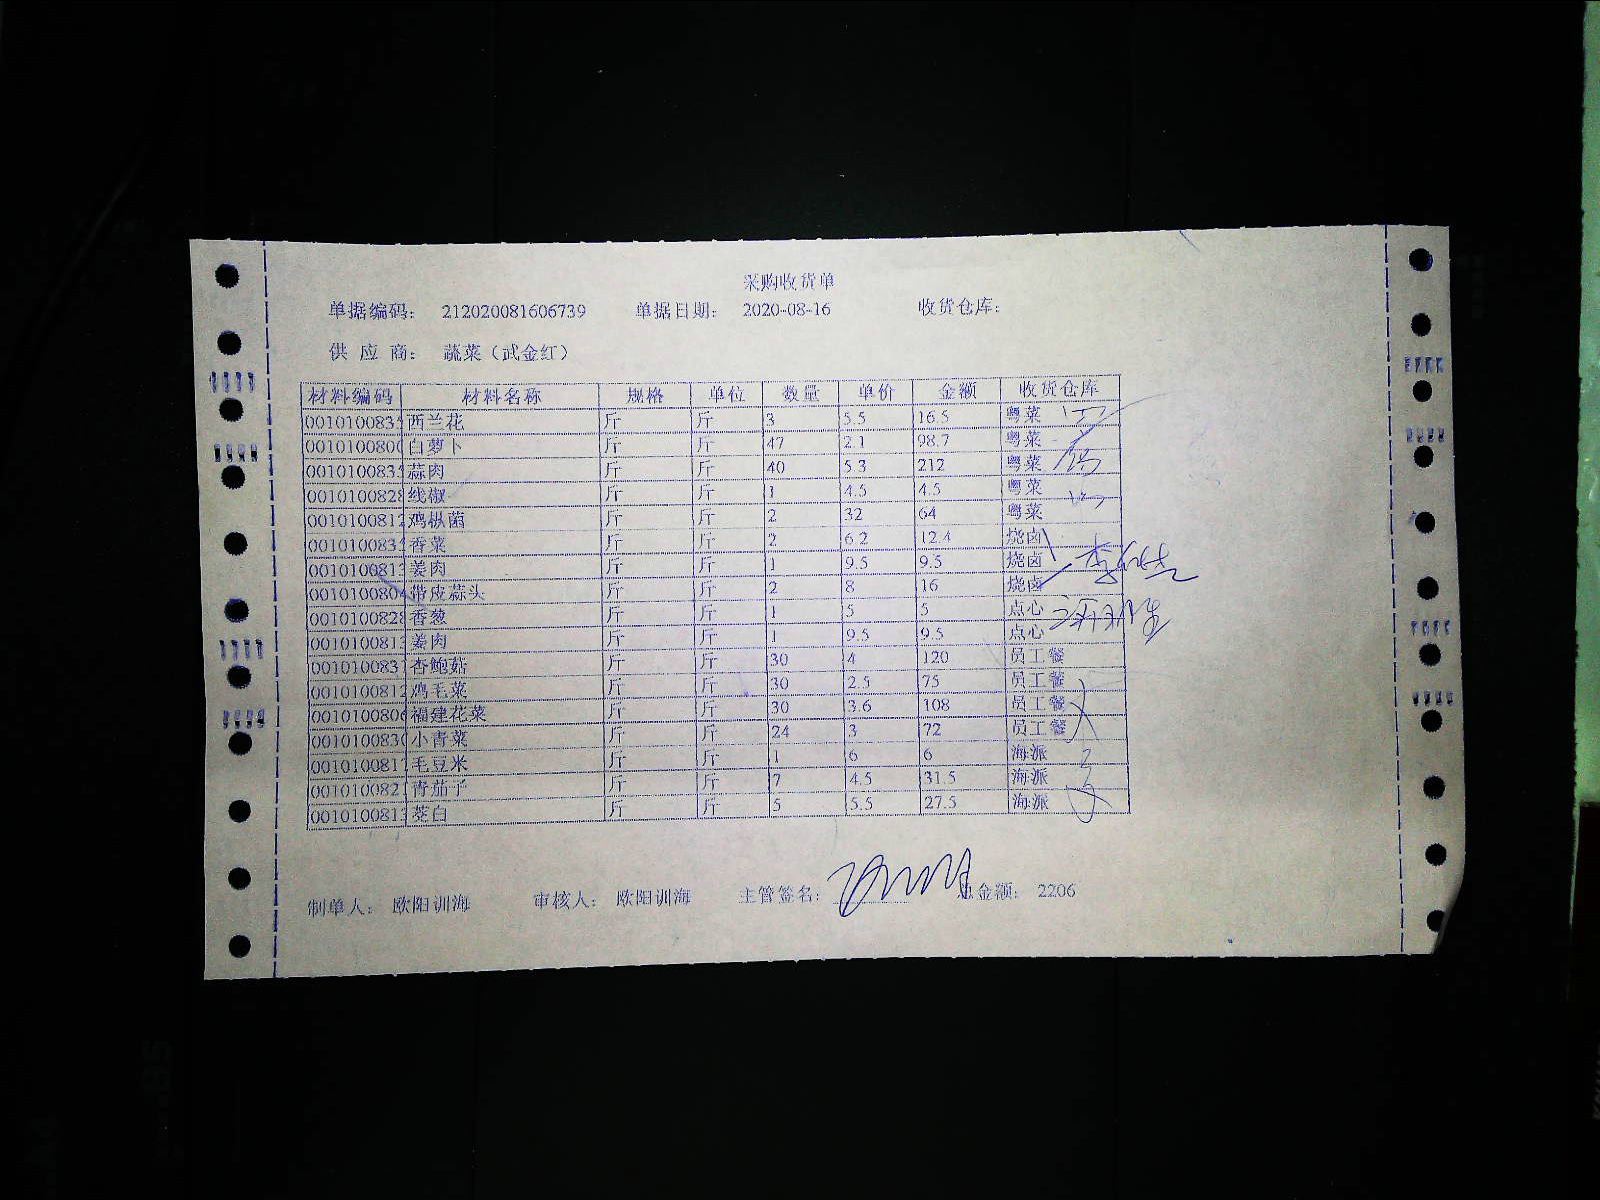 采购收货单
单据编码: 212020081606739 单据日期: 2020-08-16 收货仓库:
供 应 商: 蔬菜（武金红）
材料编码 材料名称 规格 单位 数量 单价 金额 收货仓库
001010083 西兰花 斤 斤 3 5.5 16.5 粤菜
001010080 白萝卜 斤 斤 47 2.1 98.7 粤菜
001010083 蒜肉 斤 斤 40 5.3 212 粤菜
001010082 线椒 斤 斤 1 4.5 4.5 粤菜
001010081 鸡枞菌 斤 斤 2 32 64 粤菜
001010083 香菜 斤 斤 2 6.2 12.4 烧卤
001010081 姜肉 斤 斤 1 9.5 9.5 烧卤
001010080 带皮蒜头 斤 斤 2 8 16 烧卤
001010082 香葱 斤 斤 1 5 5 点心
001010081 姜肉 斤 斤 1 9.5 9.5 点心
001010083 杏鲍菇 斤 斤 30 4 120 员工餐
001010081 鸡毛菜 斤 斤 30 2.5 75 员工餐
001010080 福建花菜 斤 斤 30 3.6 108 员工餐
001010083 小青菜 斤 斤 24 3 72 员工餐
001010081 毛豆米 斤 斤 1 6 6 海派
001010082 青茄子 斤 斤 7 4.5 31.5 海派
001010081 茭白 斤 斤 5 5.5 27.5 海派
制单人: 欧阳训海 审核人: 欧阳训海 主管签名: 总金额: 2206